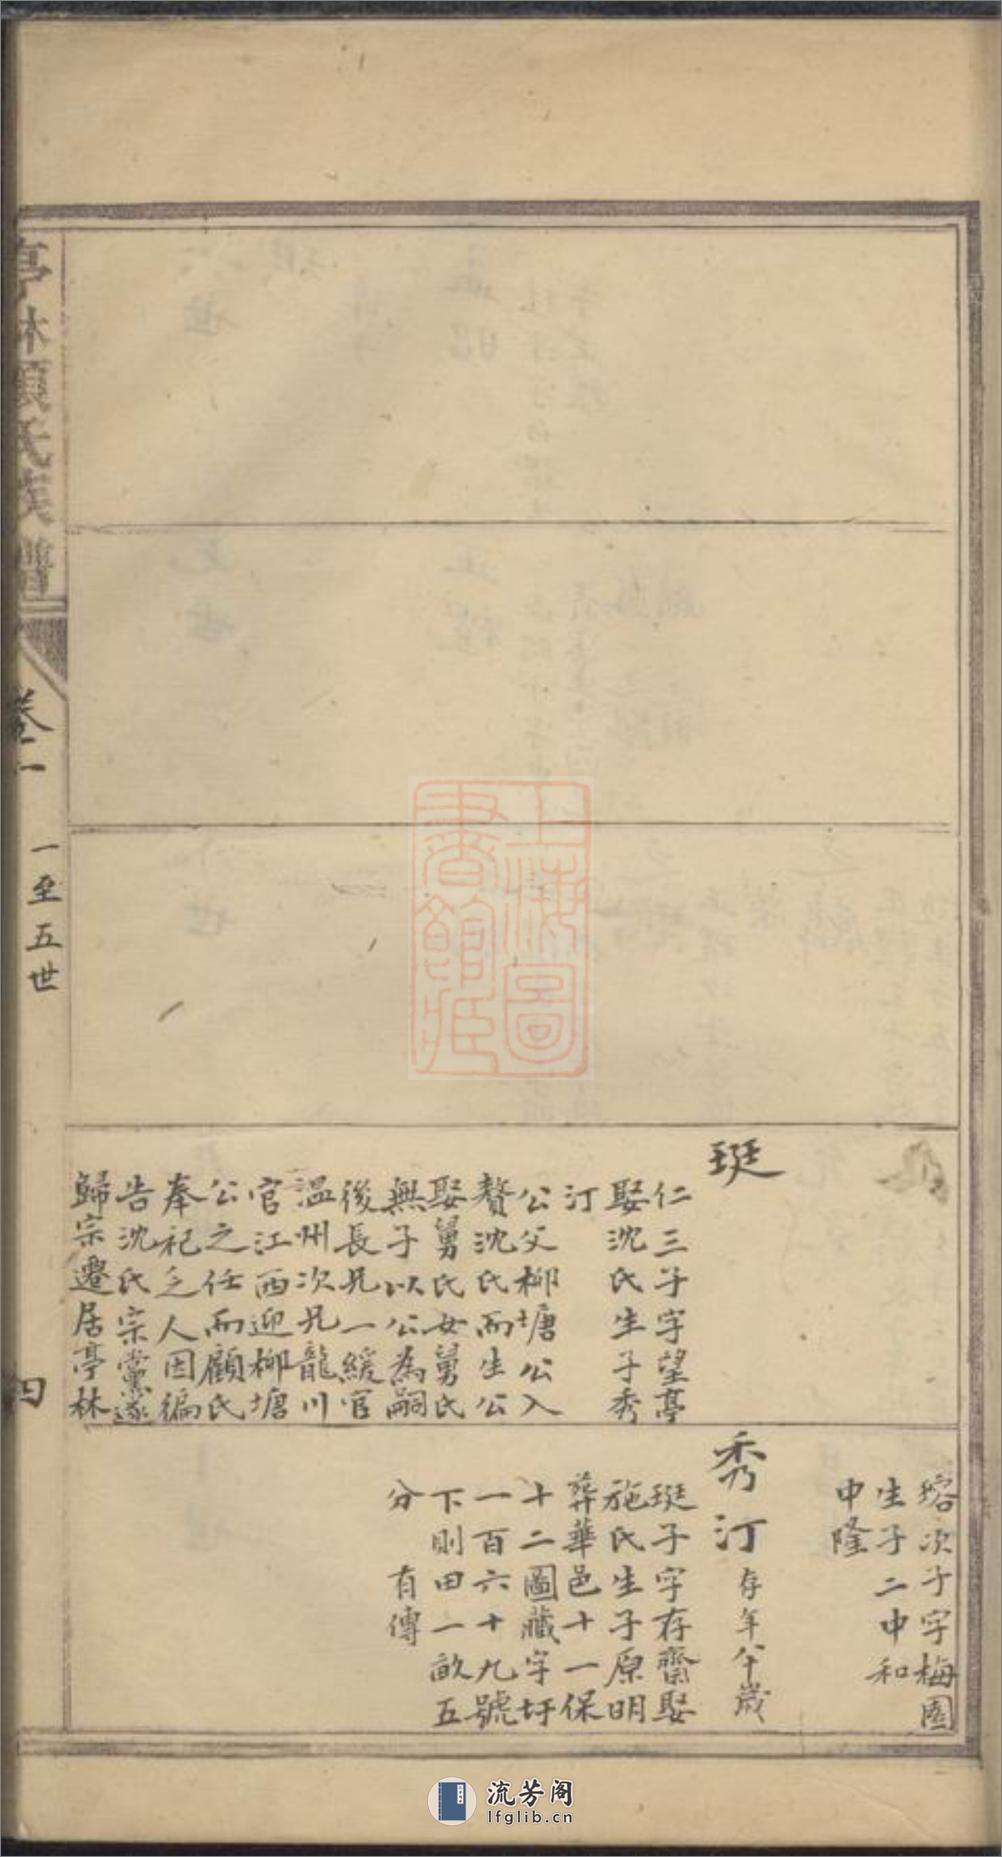 珽
仁三子字望亭
娶沈氏生子秀
汀
公父柳塘公入
贅沈氏而生公
娶舅氏女舅氏
無子以公為嗣
後長兄一緩官
溫州次兄龍川
官江西迎柳塘
公之任而顧氏
奉祀乏人因徧
告沈氏宗黨遂
歸宗遷居亭林
瑢次子字梅園
生子二中和
中隆
秀汀 存年八十歲
珽子字存齋娶
施氏生子原明
葬華邑十一保
十二圖藏字圩
一百六十九號
下則田一畝五
分 有傳
亭林顧氏族譜
卷二
一至五世
四
上海圖書館藏
流芳阁
lfglib.cn